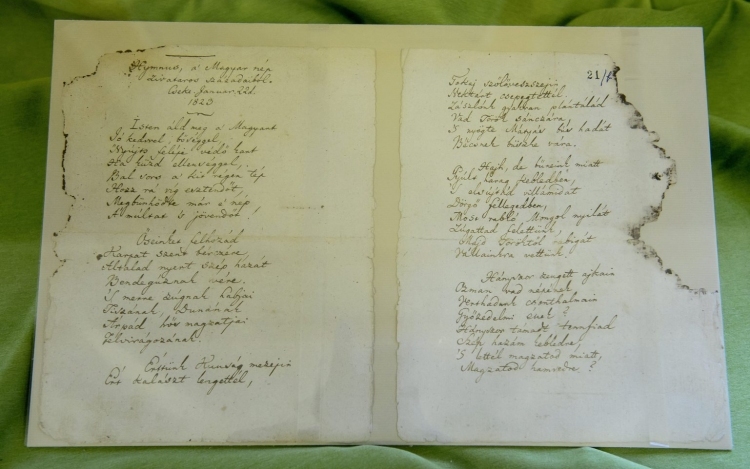 Hymnus, a' Magyar nép
zivataros századaiból.
Cseke Januar. 22d.
1823
Isten áldd meg a' Magyart
Jó kedvvel, bőséggel,
Nyújts feléje védő kart
Ha küzd ellenséggel,
Bal sors a' kit régen tép
Hozz rá víg esztendőt,
Megbünhödte már e' nép
A' múltat 's jövendőt!
Őseinket felhozád
Kárpát szent bérczére,
Általad nyert szép hazát
Bendegúznak vére.
'S merre zúgnak habjai
Tiszának, Dunának
Árpád hős magzatjai
Felvirágozának.
Értünk Kunság mezejin
Ért kalászt lengettél,
21/
Tokaj szőlővesszejin
Nektárt csepegtettél.
Zászlónk gyakran plántálád
Vad Török sánczára,
'S nyögte Mátyás bús hadát
Bécsnek büszke vára.
Hajh, de bűneink miatt
Gyúlt harag kebledben,
'S elsújtád villámidat
Dörgő fellegedben,
Most rabló Mongol nyilát
Zúgattad felettünk,
Majd Töröktől rabigát
Vállainkra vettünk.
Hányszor zengett ajkain
Ozman vad népének
Vert hadunk csonthalmain
Győzedelmi ének?
Hányszor támadt tennfiad
Szép hazám kebledre,
'S lettél magzatod miatt,
Magzatod hamvvedre?